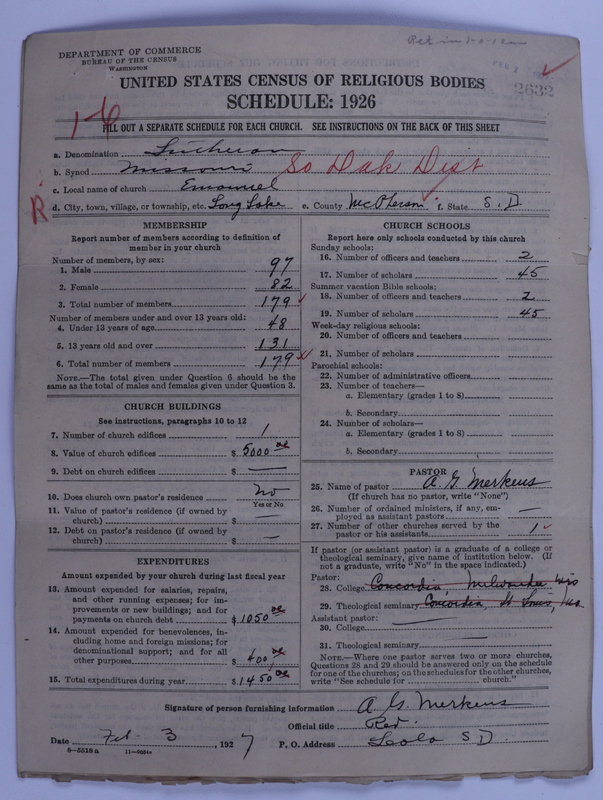 DEPARTMENT OF COMMERCE
BUREAU OF THE CENSUS
WASHINGTON
2632
UNITED STATES CENSUS OF RELIGIOUS BODIES
SCHEDULE: 1926
16
FILL OUT A SEPARATE SCHEDULE FOR EACH CHURCH. SEE INSTRUCTIONS ON THE BACK OF THIS SHEET
a. Denomination Lutheran
b. Synod Missouri So Dak Dist
c. Local name of church Emanuel
R d. City, town, village, or township, etc. Long Lake e. County McPherson f. State S. D.
MEMBERSHIP
Report number of members according to definition of
member in your church
Number of members, by sex:
1. Male 97
2. Female 82
3. Total number of members 179
Number of members under and over 13 years old:
4. Under 13 years of age 48
5. 13 years old and over 131
6. Total number of members 179
NOTE.—The total given under Question 6 should be the
same as the total of males and females given under Question 3.
CHURCH BUILDINGS
See instructions, paragraphs 10 to 12
7. Number of church edifices 1
8. Value of church edifices $ 5000 00
9. Debt on church edifices $ —
10. Does church own pastor's residence No
Yes or No
11. Value of pastor's residence (if owned by
church) $ —
12. Debt on pastor's residence (if owned by
church) $ —
EXPENDITURES
Amount expended by your church during last fiscal year
13. Amount expended for salaries, repairs,
and other running expenses; for im-
provements or new buildings; and for
payments on church debt $ 1050 00
14. Amount expended for benevolences, in-
cluding home and foreign missions; for
denominational support; and for all
other purposes $ 400 00
15. Total expenditures during year $ 1450 00
CHURCH SCHOOLS
Report here only schools conducted by this church
Sunday schools:
16. Number of officers and teachers 2
17. Number of scholars 45
Summer vacation Bible schools:
18. Number of officers and teachers 2
19. Number of scholars 45
Week-day religious schools:
20. Number of officers and teachers
21. Number of scholars
Parochial schools:
22. Number of administrative officers
23. Number of teachers—
a. Elementary (grades 1 to 8)
b. Secondary
24. Number of scholars—
a. Elementary (grades 1 to 8)
b. Secondary
PASTOR
25. Name of pastor A. G. Merkens
(If church has no pastor, write "None")
26. Number of ordained ministers, if any, em-
ployed as assistant pastors —
27. Number of other churches served by the
pastor or his assistants 1
If pastor (or assistant pastor) is a graduate of a college or
theological seminary, give name of institution below. (If
not a graduate, write "No" in the space indicated.)
Pastor:
28. College Concordia, Milwaukee Wis
29. Theological seminary Concordia, St Louis, Mo.
Assistant pastor:
30. College
31. Theological seminary
NOTE.—Where one pastor serves two or more churches,
Questions 28 and 29 should be answered only on the schedule
for one of the churches; on the schedules for the other churches,
write "See schedule for church."
Signature of person furnishing information A. G. Merkens
Official title Rev.
Date Feb. 3, 1927 P. O. Address Leola S D.
8—5318a 11—9054